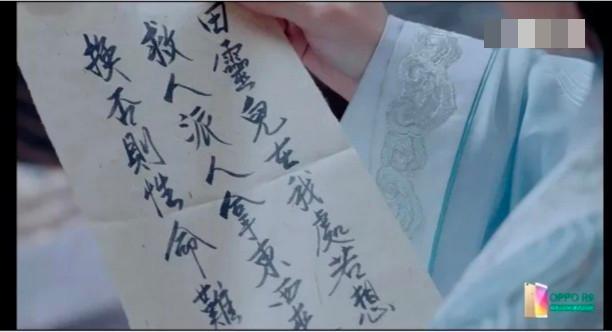 田靈兒在我處若想
救人派人拿東西
換否則性命難
OPPO R9